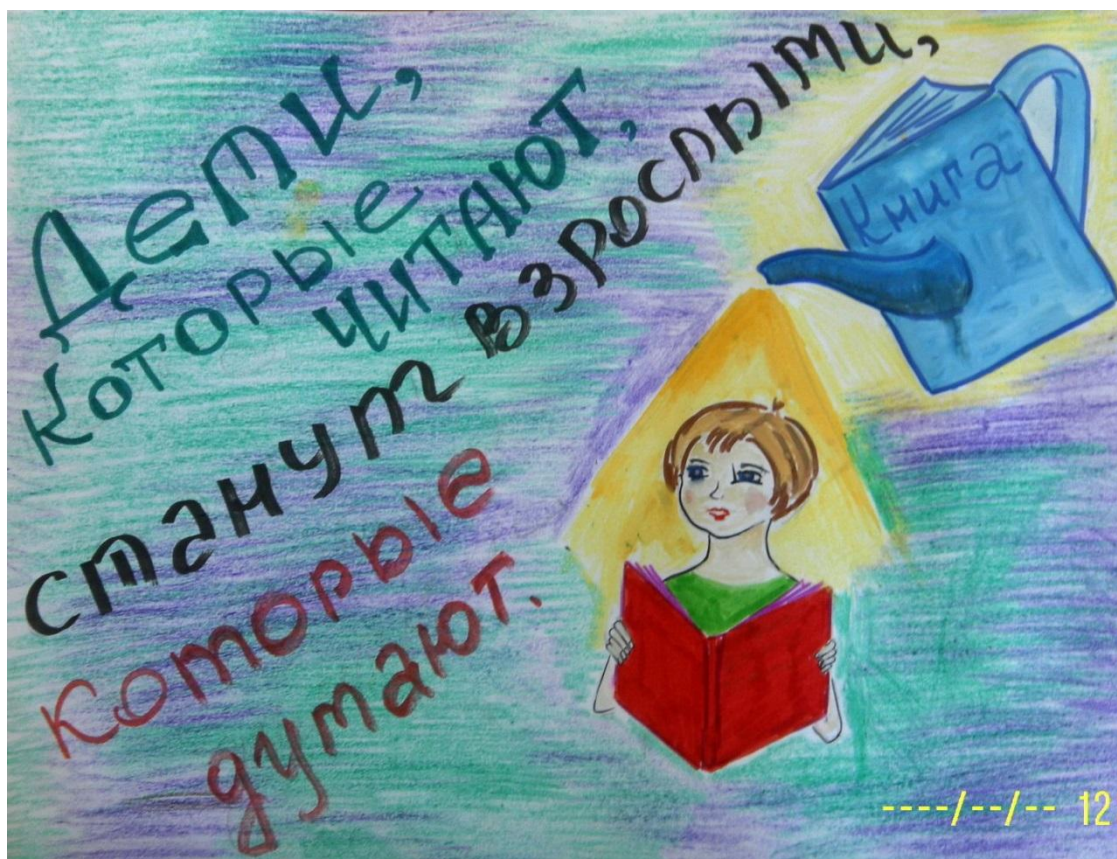 Дети,
которые
читают,
станут взрослыми,
которые
думают.
Книга
----/--/-- 12